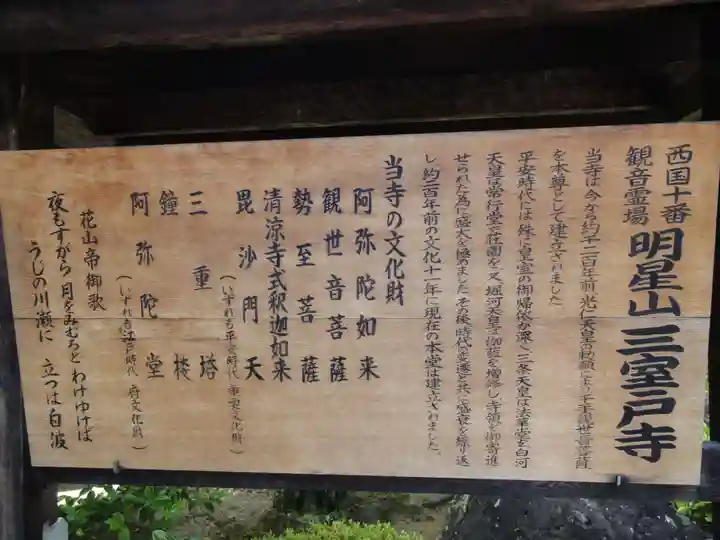 西国十番
観音霊場
明星山三室戸寺
当寺は今から約千二百年前光仁天皇の勅願により千手観世音菩薩
を本尊として建立されました
平安時代には殊に皇室の御帰依が深く三条天皇は法華堂を白河
天皇は常行堂で荘園を又堀河天皇は伽藍を増修し寺領を御寄進
せられた為に盛大を極めましたその後時代の変遷と共に盛衰を繰り返
し約二百年前の文化十一年に現在の本堂は建立されました。
当寺の文化財
阿弥陀如来
観世音菩薩
勢至菩薩
清涼寺式釈迦如来
毘沙門天
(いずれも平安時代 重要文化財)
三重塔
鐘楼
阿弥陀堂
(いずれも江戸時代 府文化財)
花山帝御歌
夜もすがら 月をみむろと わけゆけば
うじの川瀬に 立つは白波